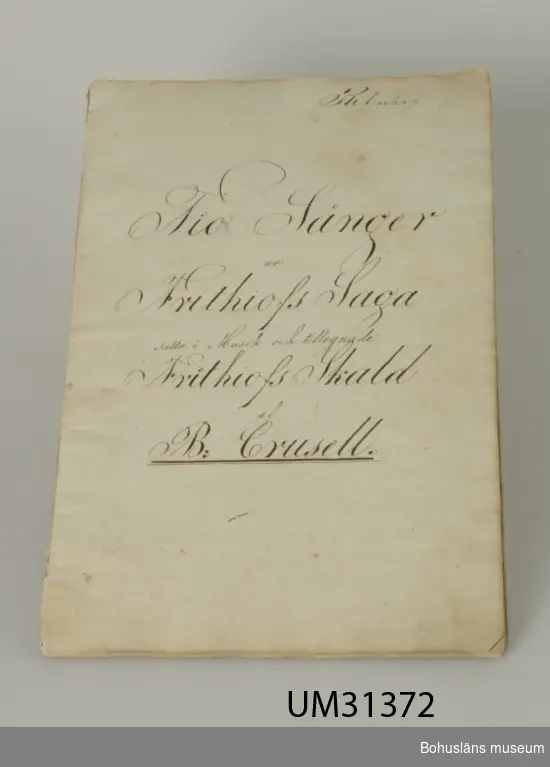 Tio Sånger
ur
Frithiofs Saga
satte i Musik och tillegnade
Frithiofs Skald
af
B: Crusell.
UM31372
Bohusläns museum